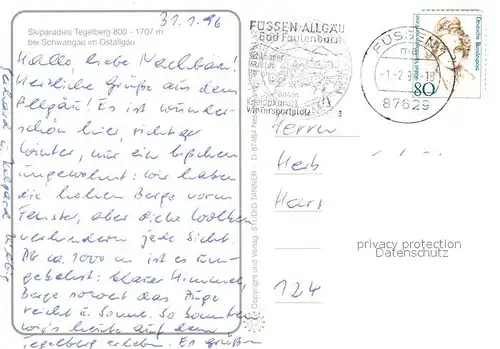 Skiparadies Tegelberg 800 - 1707 m
bei Schwangau im Ostallgäu
31.1.96
Hallo, liebe Nachbarn!
Herzliche Grüße aus dem
Allgäu! Es ist wunder-
schön hier, richtiger
Winter, nur ein bißchen
ungewohnt: wir haben
die hohen Berge vorm
Fenster, aber dicke Wolken
verhindern jede Sicht.
Ab ca. 1000 m ist es um-
gekehrt: klarer Himmel,
Berge soweit das Auge
reicht u. Sonne. So konnten
wir's heute auf dem
Tegelberg erleben. Es grüßen
Copyright und Verlag STUDIO TANNER
FÜSSEN-ALLGÄU
Bad Faulenbach
Kneippkurort
Wintersportplatz
FÜSSEN 1
87629
Deutsche Bundespost
80
Herrn
Herb
Harr
124
privacy protection
Datenschutz